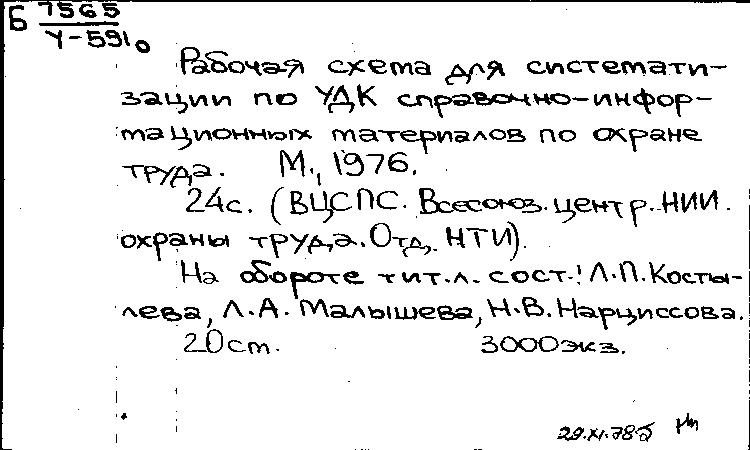 Б 7565
У-591о
Рабочая схема для системати-
зации по УДК справочно-инфор-
мационных материалов по охране
труда. М., 1976.
24с. (ВЦСПС. Всесоюз. центр. НИИ.
охраны труда. Отд. НТИ).
На обороте тит.л. сост.: Л.П. Косты-
лева, Л.А. Малышева, Н.В. Нарциссова.
20см. 3000экз.
29.XI.78